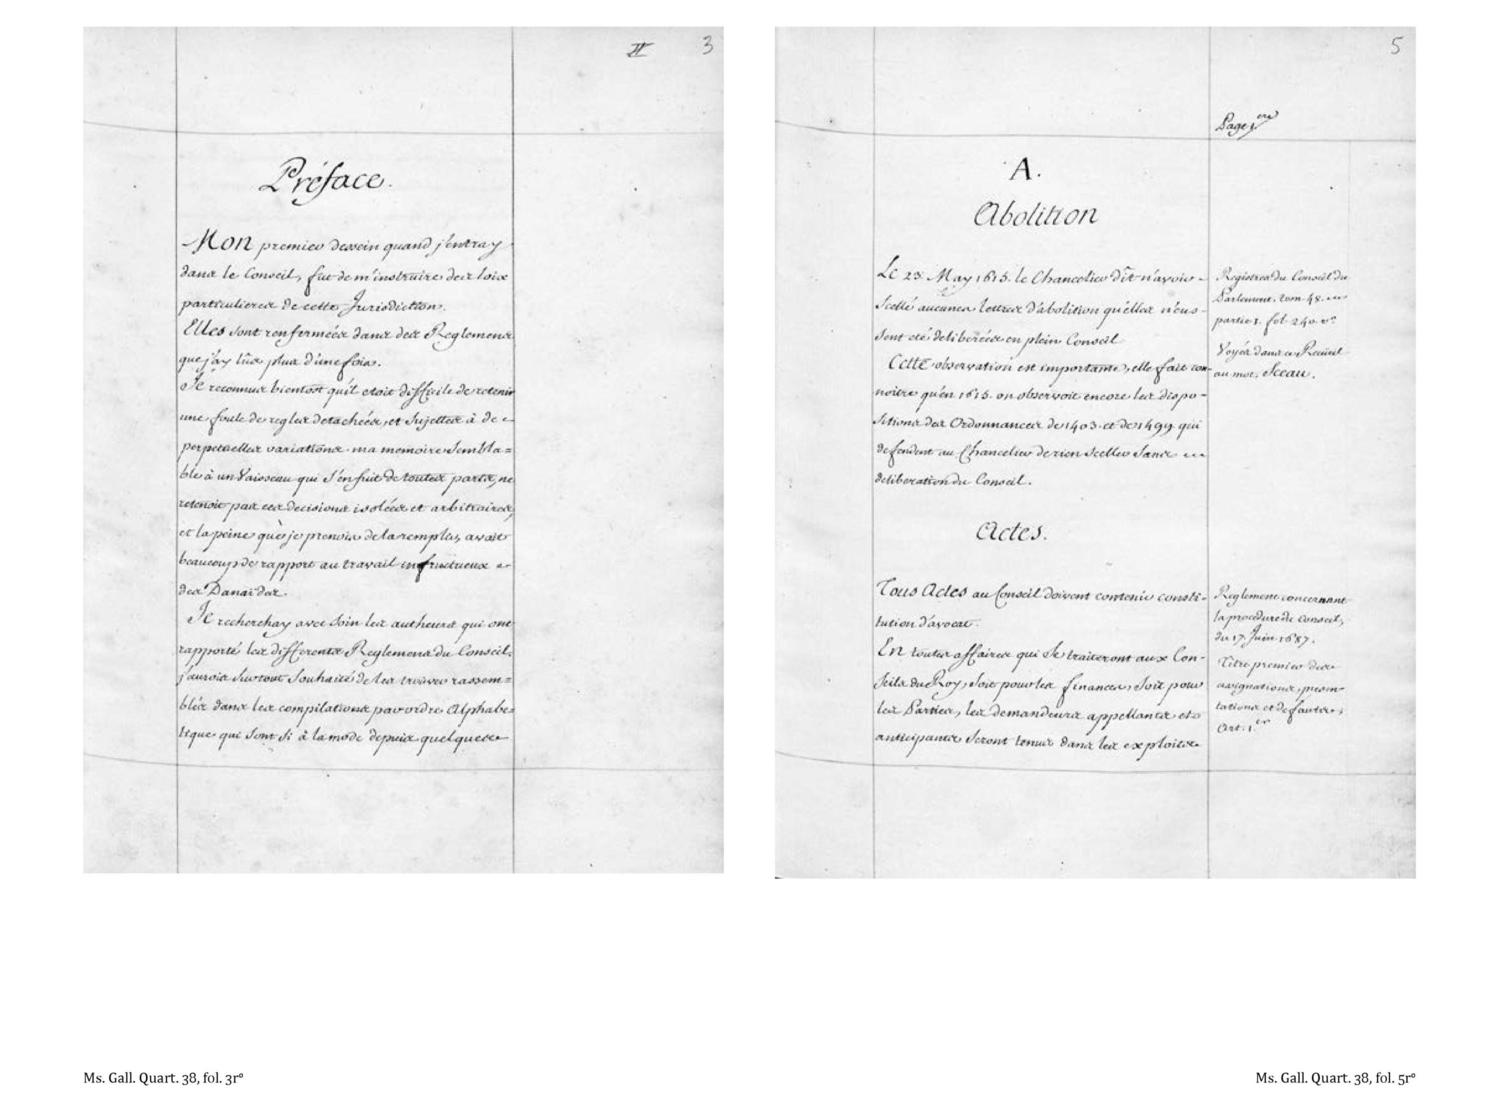 II 3
Préface.
Mon premier dessein quand j'entray
dans le Conseil, fut de m'instruire des loix
particulieres de cette Jurisdiction.
Elles sont renfermées dans des Reglemens
que j'ay lûs plus d'une fois.
Je reconnus bientost qu'il etoit difficile de retenir
une foule de regles detachées, et sujettes à de
perpetuelles variations. ma memoire sembla=
ble à un Vaisseau qui s'enfuit de toutes parts, ne
retenoit pas ces decisions isolées et arbitraires,
et la peine que je prenois de la remplir, avoit
beaucoup de rapport au travail infructueux
des Danaïdes.
Je recherchay avec soin les autheurs qui ont
rapporté les differents Reglemens du Conseil.
j'aurois surtout souhaité de les trouver rassem=
blés dans les compilations par ordre Alphabe=
tique qui sont si à la mode depuis quelques
Ms. Gall. Quart. 38, fol. 3r°
5
Page 1ere
A.
Abolition
Le 23. May 1615. le Chancelier dit n'avoir
scellé aucunes lettres d'abolition qu'elles n'eus-
sent eté deliberées en plein Conseil
Cette observation est importante, elle fait con-
noitre qu'en 1615. on observoit encore les dispo-
sitions des Ordonnances de 1403. et de 1499. qui
defendent au Chancelier de rien sceller sans
deliberation du Conseil.
Registres du Conseil du
Parlement. tom. 48. en
partie 1. fol. 240. v°
Voyés dans ce Recüeil
au mot. Sceau.
Actes.
Tous Actes au Conseil doivent contenir consti-
tution d'avocat.
En toutes affaires qui se traiteront aux Con-
seils du Roy, soit pour les finances, soit pour
les Parties, les demandeurs appellants et
anticipants seront tenus dans les exploits
Reglement concernant
la procedure du conseil,
du 17. Juin 1687.
Titre premier des
assignations, presen-
tations et defauts,
Art. 1er
Ms. Gall. Quart. 38, fol. 5r°